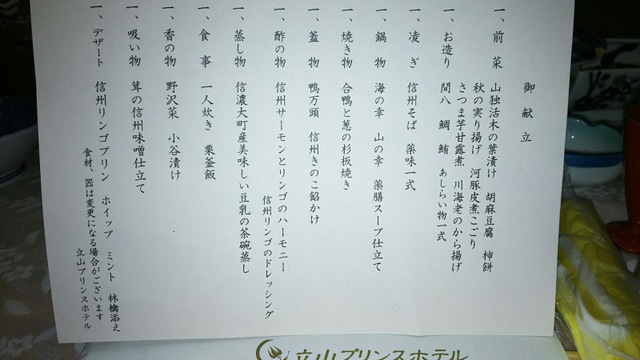 御献立
一、前菜 山独活木の葉漬け 胡麻豆腐 柿餅
秋の実り揚げ 河豚皮煮こごり
さつま芋甘露煮 川海老のから揚げ
一、お造り 間八 鯛 鮪 あしらい物一式
一、凌ぎ 信州そば 薬味一式
一、鍋物 海の幸 山の幸 薬膳スープ仕立て
一、焼き物 合鴨と葱の杉板焼き
一、蓋物 鴨万頭 信州きのこ餡かけ
一、酢の物 信州サーモンとリンゴのハーモニー
信州リンゴのドレッシング
一、蒸し物 信濃大町産美味しい豆乳の茶碗蒸し
一、食事 一人炊き 栗釜飯
一、香の物 野沢菜 小谷漬け
一、吸い物 茸の信州味噌仕立て
一、デザート 信州リンゴプリン ホイップ ミント 林檎添え
食材、器は変更になる場合がございます
立山プリンスホテル
立山プリンスホテル